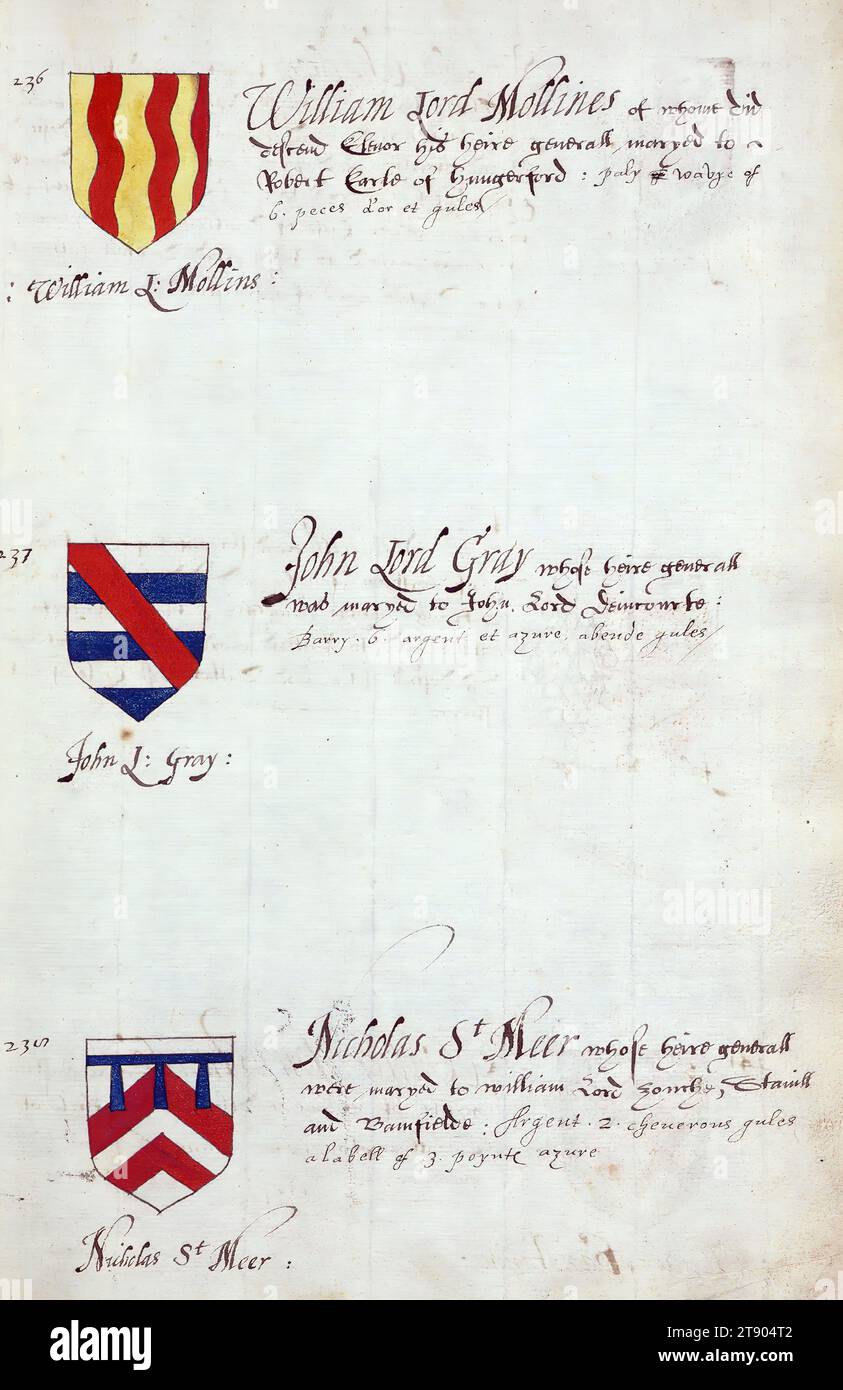 236
William Lord Mollines of whome did
descend Elenor his heire generall maryed to
Robert Earle of Hungerford : paly wavye of
6. peces d'or et gules
: William L: Mollins :
237
John Lord Gray whose heire generall
was maryed to John Lord Deincourte :
Barry . 6 . argent et azure . abende gules
John L: Gray :
238
Nicholas St Meer whose heire generall
were maryed to william Lord zouche, Stavill
and Bamfielde : Argent . 2 . cheverons gules
a labell of 3. poynte azure
Nicholas St Meer :
alamy
Image ID: 2T904T2
www.alamy.com